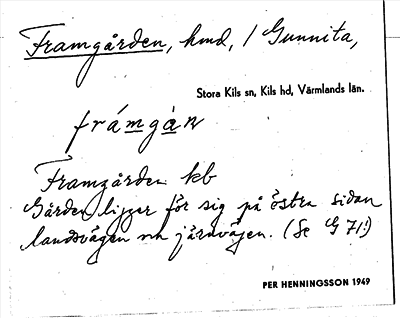 Framgården, hmd, / Gunnita,
Stora Kils sn, Kils hd, Värmlands län.
frámgàṇ
Framgården kb
Gården ligger för sig på östra sidan
landsvägen och järnvägen. (Se G 71!)
PER HENNINGSSON 1949